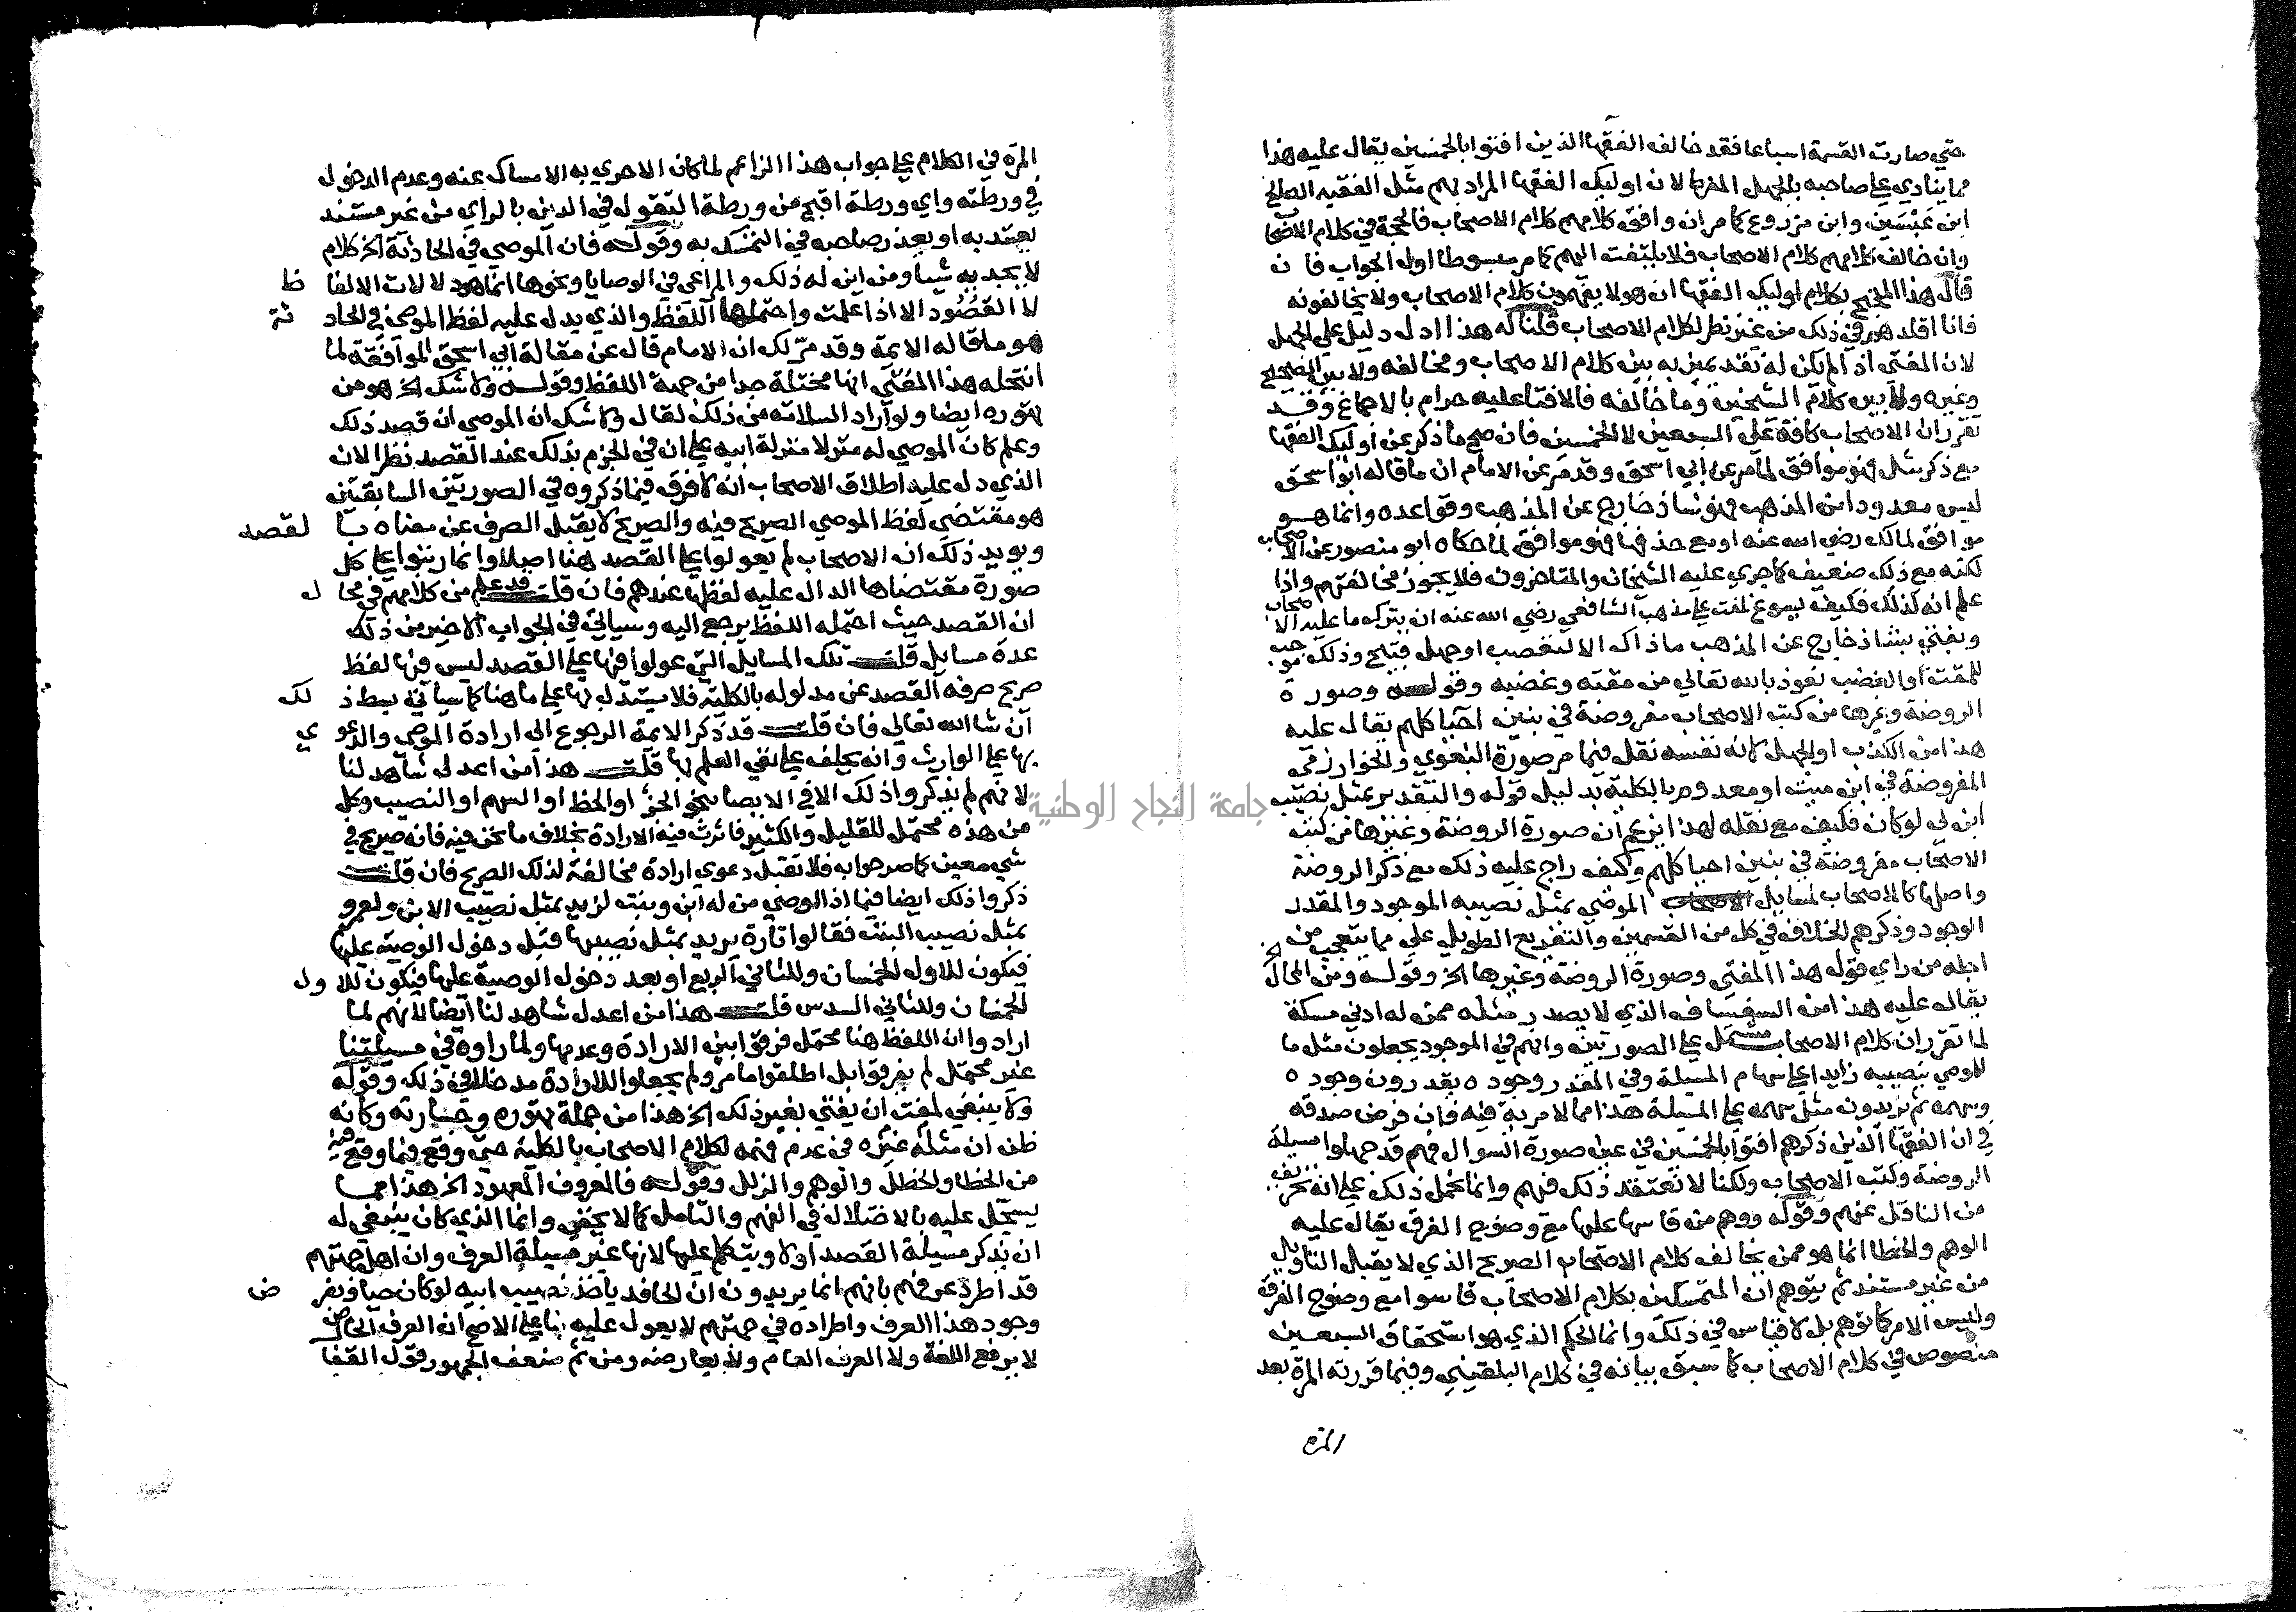 حتي صارت القسمة اسباعا فقد خالف الفقها الذين افتوا بالخمسين يقال عليه هذا
مما ينادي علي صاحبه بالجهل المفرط لان اوليك الفقها المراد بهم مثل الفقيه الصالح
ابن عبسين وابن مزروع كما مر ان وافق كلامهم كلام الاصحاب فالحجة في كلام الاصحاب
وان خالف كلامهم كلام الاصحاب فلا يلتفت اليهم كما مر مبسوطا اول الجواب فان
قال هذا المحتج بكلام اوليك الفقها ان هولا يفهمون كلام الاصحاب ولا يخالفونه
فانا اقلدهم في ذلك من غير نظر لكلام الاصحاب قلنا له هذا ادل دليل علي الجهل
لان المفتي اذا لم يكن له نقد يميز به بين كلام الاصحاب ومخالفه ولا بين الصحيح
وغيره ولا بين كلام الشيخين وما خالفه فالافتا عليه حرام بالاجماع وقد
تقرر ان الاصحاب كافة علي السبعين لا الخمسين فان صح ما ذكر عن اوليك الفقها
مع ذكر مثل فهو موافق لما مر عن ابي اسحق وقد مر عن الامام ان ما قاله ابو اسحق
ليس معدودا من المذهب فهو شاذ خارج عن المذهب وقواعده وانما هو
موافق لمالك رضي الله عنه او مع حذفها فهو موافق لما حكاه ابو منصور عن الاصحاب
لكنه مع ذلك ضعيف كما جري عليه الشيخان والمتاخرون فلا يجوز مخالفتهم واذا
علم انه كذلك فكيف يسوغ لمفت علي مذهب الشافعي رضي الله عنه ان يترك ما عليه الاصحاب
ويفتي بشاذ خارج عن المذهب ما ذاك الا لتعصب او جهل قبيح وذلك موجب
للمقت او الغضب نعوذ بالله تعالي من مقته وغضبه وقوله وصورة
الروضة وغيرها من كتب الاصحاب مفروضة في بنين احيا كلهم يقال عليه
هذا من الكذب او الجهل لانه نفسه نقل فيما مر صورة البغوي والخوارزمي
المفروضة في ابن ميت او معدوم بالكلية بدليل قوله والتقدير بمثل نصيب
ابن لي لو كان فكيف مع نقله لهذا يزعم ان صورة الروضة وغيرها من كتب
الاصحاب مفروضة في بنين احيا كلهم وكيف راج عليه ذلك مع ذكر الروضة
واصلها كالاصحاب لمسايل الموصي بمثل نصيبه الموجود والمقدر
الوجود وذكرهم الخلاف في كل من القسمين والتفريع الطويل علي مما يتعجب من
اجله من راي قول هذا المفتي وصورة الروضة وغيرها الخ وقوله ومن المحال الخ
يقال عليه هذا من السفساف الذي لا يصدر مثله ممن له ادني مسكة
لما تقرر ان كلام الاصحاب مشتمل علي الصورتين وانهم في الموجود يجعلون مثل ما
للموصي بنصيبه زايدا علي سهام المسيلة وفي المقدر وجوده يقدرون وجوده
وسهمه ثم يزيدون مثل سهمه علي المسيلة هذا مما لا مرية فيه فان فرض صدقه
في ان الفقها الذين ذكرهم افتوا بالخمسين في عين صورة السوال فهم قد جهلوا مسيلة
الروضة وكتب الاصحاب ولكنا لا نعتقد ذلك فيهم وانما نحمل ذلك علي انه تحريف
من الناقل عنهم وقوله ووهم من قاسها عليها مع وضوح الفرق يقال عليه
الوهم والخطا انما هو ممن يخالف كلام الاصحاب الصريح الذي لا يقبل التاويل
من غير مستند ثم يتوهم ان المتمسكين بكلام الاصحاب قاسوا مع وضوح الفرق
وليس الامر كما توهم بل لا قياس في ذلك وانما الحكم الذي هو استحقاق السبعين
منصوص في كلام الاصحاب كما سبق بيانه في كلام البلقيني وفيما قررته المرة بعد
المرة
المرة في الكلام علي جواب هذا الزاعم لما كان الاحري به الامساك عنه وعدم الدخول
في ورطته واي ورطة اقبح من ورطة التقول في الدين بالراي من غير مستند
يعتد به او يعذر صاحبه في التمسك به وقوله فان الموصي في الحادثة الخ كلام
لا يجديه شيا ومن اين له ذلك والمراعي في الوصايا ونحوها انما هو دلالات الالفاظ
لا القصود الا اذا علمت واحتملها اللفظ والذي يدل عليه لفظ الموصي في الحادثة
هو ما قاله الايمة وقد مر لك ان الامام قال عن مقالة ابي اسحق الموافقة لما
انتحله هذا المفتي انها مختلة جدا من جهة اللفظ وقوله ولا شك الخ هو من
تهوره ايضا ولو اراد السلامة من ذلك لقال ولا شك ان الموصي ان قصد ذلك
وعلم كان الموصي له منزلا منزلة ابيه علي ان في الجزم بذلك عند القصد نظرا لان
الذي دل عليه اطلاق الاصحاب انه لا فرق فيما ذكروه في الصورتين السابقتين
هو مقتضي لفظ الموصي الصريح فيه والصريح لا يقبل الصرف عن معناه بالقصد
ويويد ذلك ان الاصحاب لم يعولوا علي القصد هنا اصلا وانما رتبوا علي كل
صورة مقتضاها الدال عليه لفظها عندهم فان قلت قد علم من كلامهم في محال
ان القصد حيث احتمله اللفظ يرجع اليه وسياتي في الجواب الاخير من ذلك
عدة مسايل قلت تلك المسايل التي عولوا فيها علي القصد ليس فيها لفظ
صريح صرفه القصد عن مدلوله بالكلية فلا يستدل بها علي ما هنا كما سياتي بسط ذلك
ان شا الله تعالي فان قلت قد ذكر الايمة الرجوع الي ارادة الموصي والدعوي
بها علي الوارث وانه يحلف علي نفي العلم بها قلت هذا من اعدل شاهد لنا
لانهم لم يذكروا ذلك الا في الايصا بنحو الجزء او الحظ او السهم او النصيب وكل
من هذه محتمل للقليل والكثير فاثرت فيه الارادة بخلاف ما نحن فيه فانه صريح في
شي معين كما صر جوابه فلا تقبل دعوي ارادة مخالفة لذلك الصريح فان قلت
ذكروا ذلك ايضا فيما اذا اوصي من له ابن وبنت لزيد بمثل نصيب الابن ولعمرو
بمثل نصيب البنت فقالوا تارة يريد بمثل نصيبها قبل دخول الوصية عليها
فيكون للاول الخمسان وللثاني الربع او بعد دخول الوصية عليها فيكون للاول
الخمسان وللثاني السدس قلت هذا من اعدل شاهد لنا ايضا لانهم لما
ارادوا ان اللفظ هنا محتمل فرقوا بين الارادة وعدمها ولما راوه في مسيلتنا
غير محتمل لم يفرقوا بل اطلقوا ما مر ولم يجعلوا للارادة مدخلا في ذلك وقوله
ولا ينبغي لمفت ان يفتي بغير ذلك الخ هذا من جملة تهوره وجسارته وكانه
ظن ان مثله غيره في عدم فهمه لكلام الاصحاب بالكلية حتي وقع فيما وقع فيه
من الخطا والخطل والوهم والزلل وقوله فالمعروف المعهود الخ هذا مما
يسجل عليه بالاختلال في الفهم والتامل كما لا يخفي وانما الذي كان ينبغي له
ان يذكر مسيلة القصد اولا ويتكلم عليها لانها غير مسيلة العرف وان اهل جهتهم
قد اطرد عرفهم بانهم انما يريدون ان الحافد ياخذ نصيب ابيه لو كان حيا وبفرض
وجود هذا العرف واطراده في جهتهم لا يعول عليه بنا علي الاصح ان العرف الخاص
لا يرفع اللغة ولا العرف العام ولا يعارضه ومن ثم ضعف الجمهور قول القفال
جامعة النجاح الوطنية